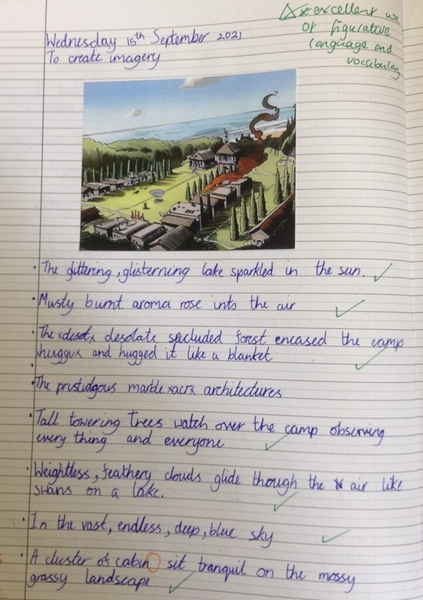 excellent use
of figurative
language and
vocabulary
Wednesday 15th September 2021
To create imagery
The glittering, glisterning lake sparkled in the sun.
Musty burnt aroma rose into the air
The desolate secluded forest encased the camp
and hugged it like a blanket
The prustidgous marble architectures
Tall towering trees watch over the camp observing
every thing and everyone
Weightless, feathery clouds glide though the air like
swans on a lake.
In the vast, endless, deep, blue sky
A cluster of cabin sit tranquil on the mossy
grassy landscape